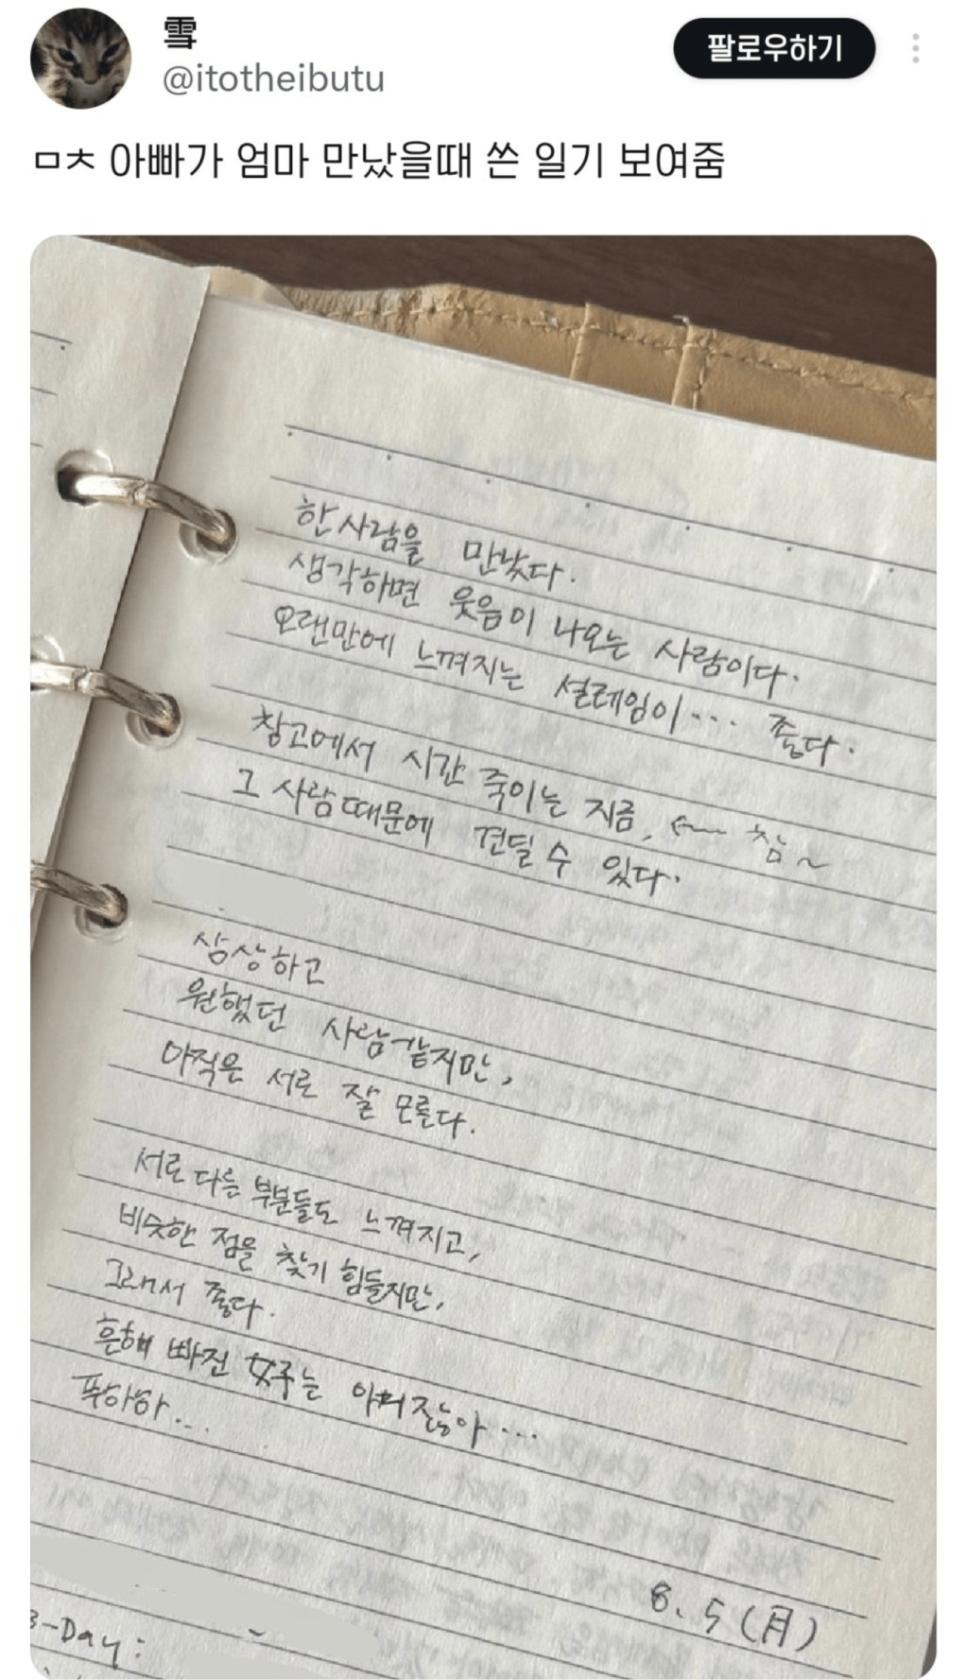 雪
팔로우하기
@itotheibutu
ㅁㅊ 아빠가 엄마 만났을때 쓴 일기 보여줌
한 사람을 만났다.
생각하면 웃음이 나오는 사람이다.
오랜만에 느껴지는 설레임이... 좋다.
창고에서 시간 죽이는 지금, ← 참~
그 사람 때문에 견딜 수 있다.
상상하고
원했던 사람같지만,
아직은 서로 잘 모른다.
서로 다른 부분들도 느껴지고,
비슷한 점을 찾기 힘들지만,
그래서 좋다.
흔해 빠진 女주는 아니잖아...
푸하하...
8. 5 (月)
-Day: